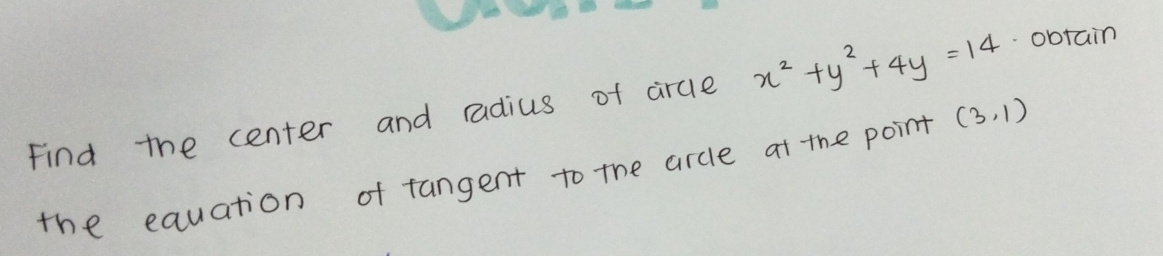 Find the center and radius of circle x² + y² + 4y = 14 . obtain
the equation of tangent to the circle at the point (3,1)